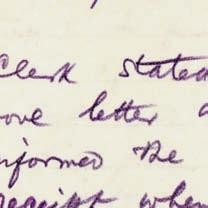 Clerk stated
ove letter a
informed Re
receipt when